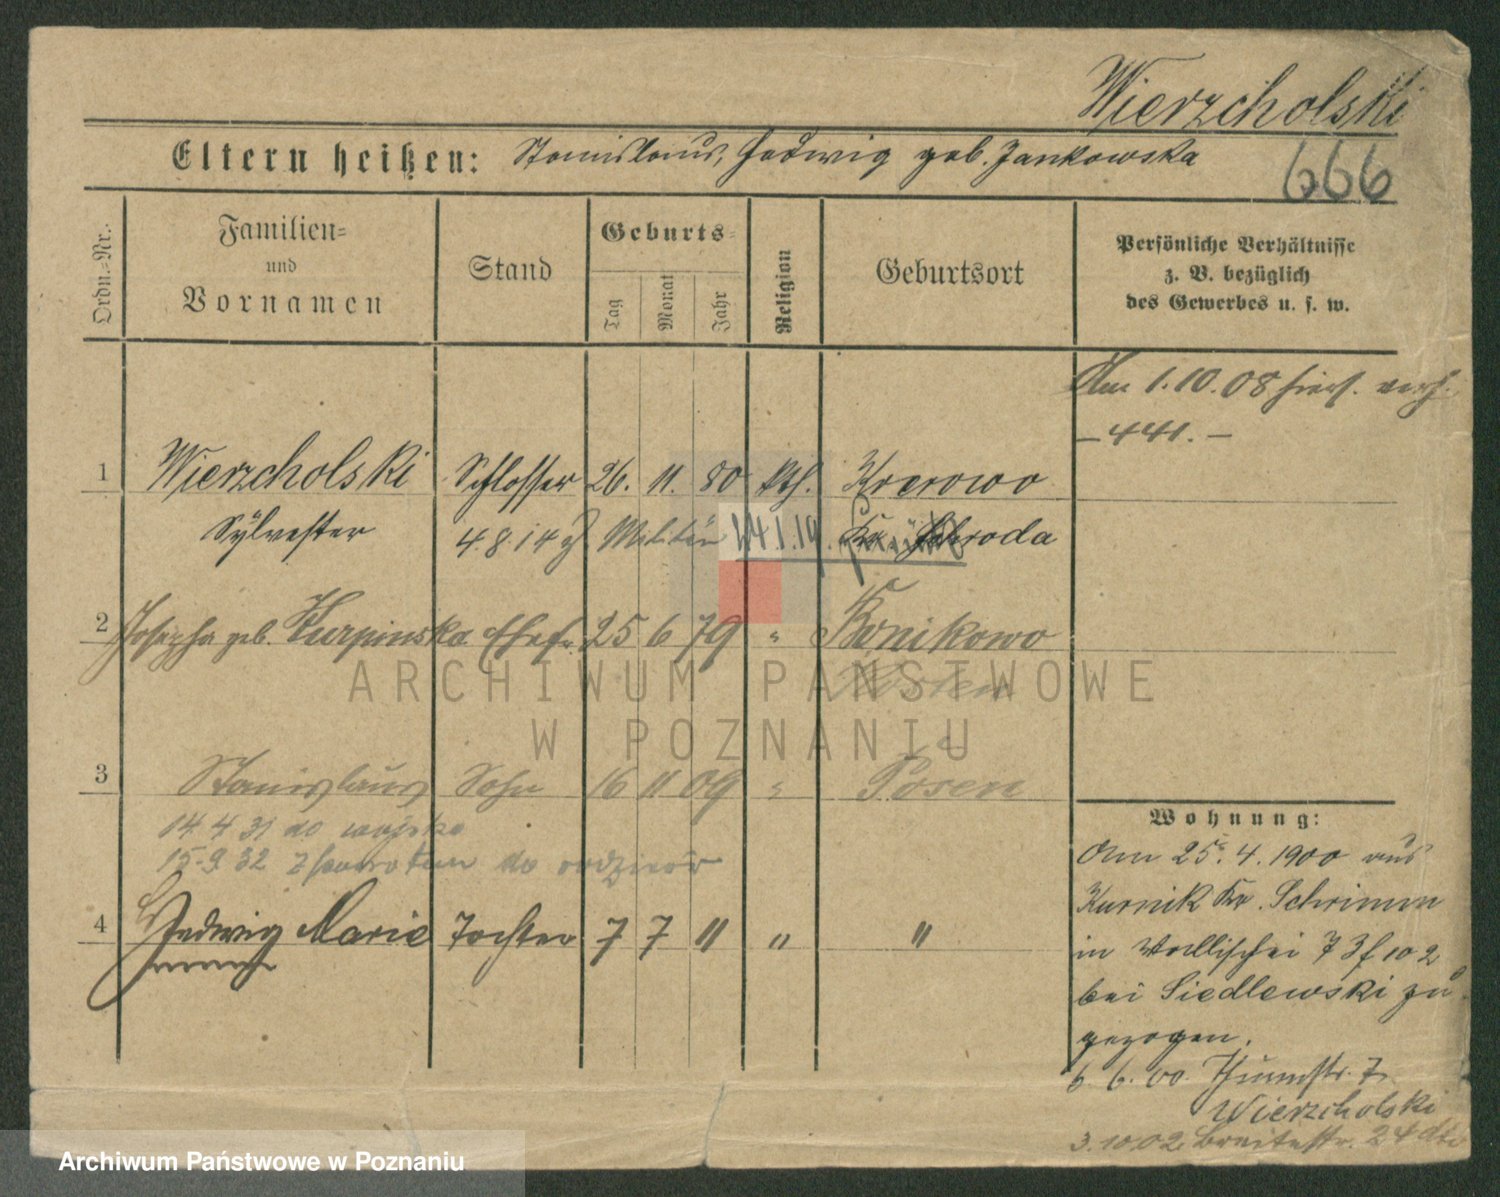 Wierzcholski
Eltern heißen: Stanislaus, Hedwig geb. Jankowska
666
Ordn.-Nr.
Familien-
und
Vornamen
Stand
Geburts-
Tag
Monat
Jahr
Religion
Geburtsort
Persönliche Verhältnisse
z. B. bezüglich
des Gewerbes u. s. w.
Am 1.10.08 hiers. verh.
- 441. -
1 Wierzcholski Schlosser 26. 11. 80 kth. Krerowo
Sylvester 4.8.14 z Militär 24.1.19. Kr. Schroda
2 Josepha geb. Kurpinska Ehefr. 25 6 79 " Bonikowo
Kosten
3 Stanislaus Sohn 16 11 09 " Posen
14.4 31 do wojska
15.9.32 z powrotem do
4 Hedwig Marie Tochter 7 7 11 " "
Wohnung:
Am 25. 4. 1900 aus
Kurnik Kr. Schrimm
in Wallischei 73
bei Siedlewski zu
gezogen.
6. 6. 00. Thurmstr. 7
Wierzcholski
3.10.02. Breitestr. 24
ARCHIWUM PAŃSTWOWE
W POZNANIU
Archiwum Państwowe w Poznaniu